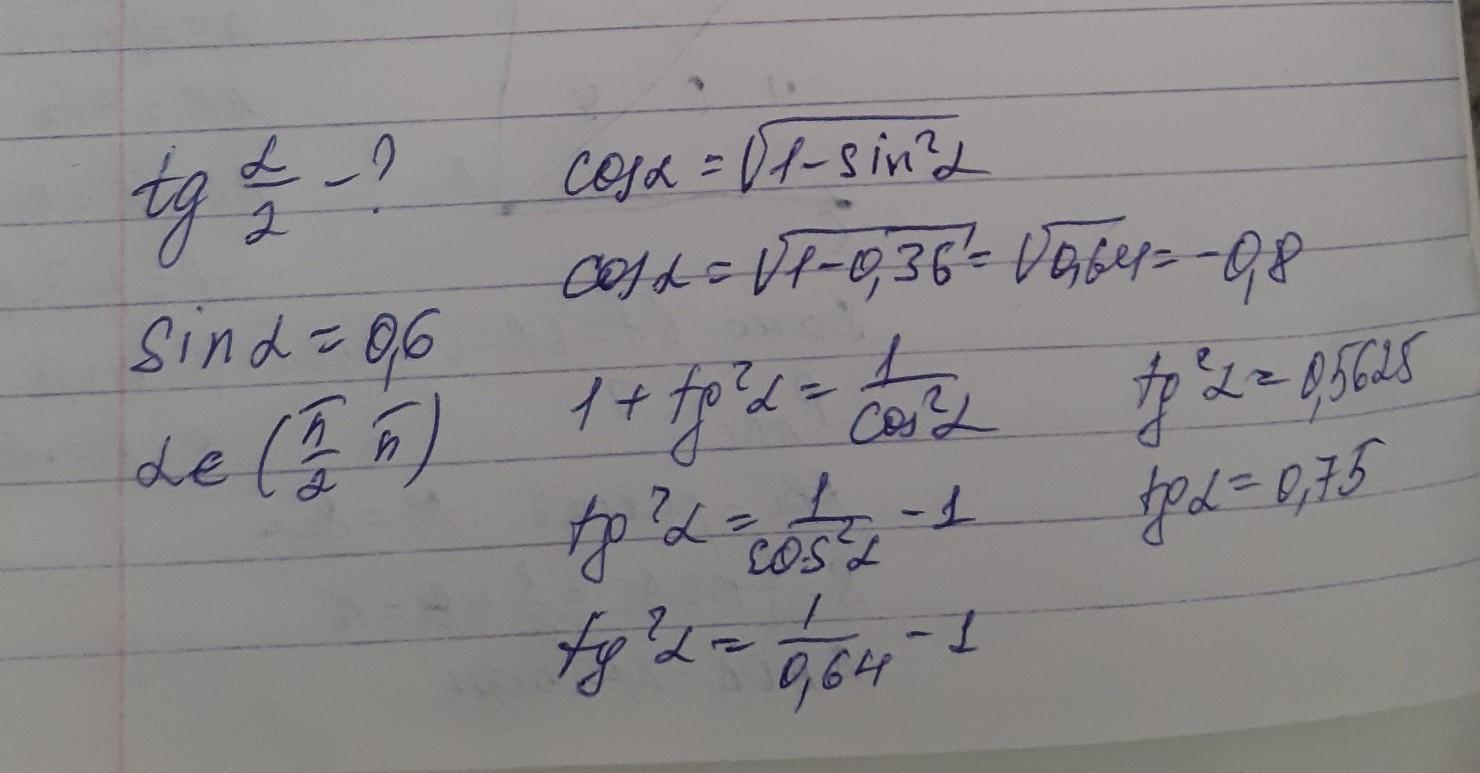 tg α/2 - ?
sin α = 0,6
α ∈ (π/2 π)
cos α = √(1 - sin²α)
cos α = √(1 - 0,36) = √(0,64) = -0,8
1 + tg²α = 1/cos²α
tg²α = 1/cos²α - 1
tg²α = 1/0,64 - 1
tg²α = 0,5625
tg α = 0,75